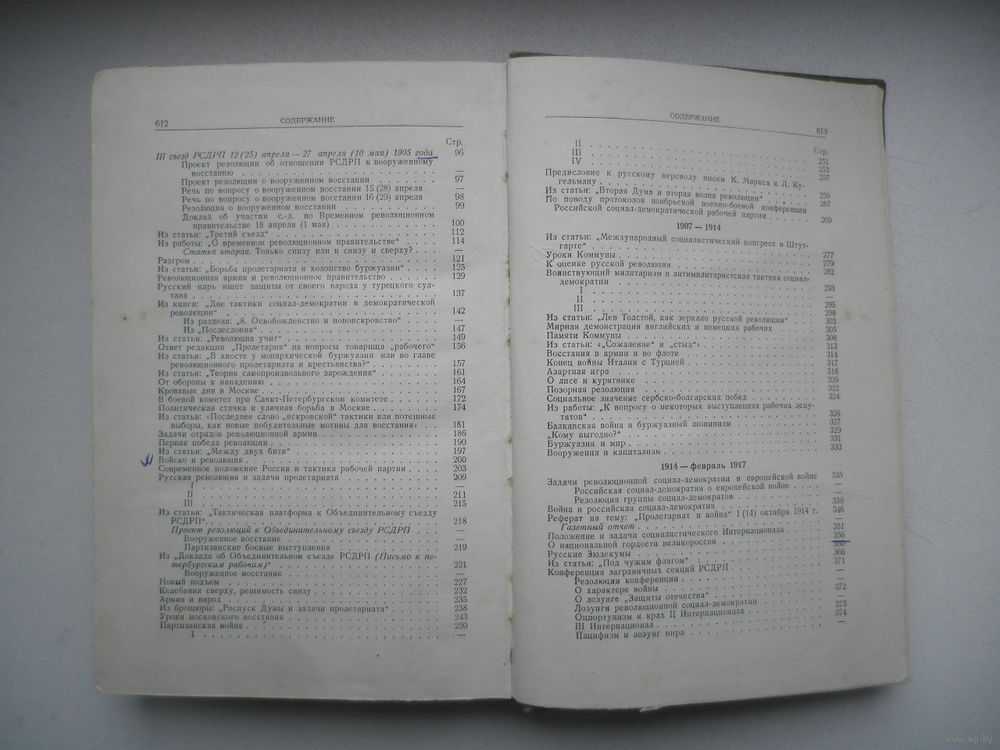 612
СОДЕРЖАНИЕ
Стр.
III съезд РСДРП 12 (25) апреля — 27 апреля (10 мая) 1905 года 96
Проект резолюции об отношении РСДРП к вооруженному
восстанию —
Проект резолюции о вооруженном восстании 97
Речь по вопросу о вооруженном восстании 15 (28) апреля —
Речь по вопросу о вооруженном восстании 16 (29) апреля 98
Резолюция о вооруженном восстании 99
Доклад об участии с.-д. во Временном революционном
правительстве 18 апреля (1 мая) 100
Из статьи: „Третий съезд“ 112
Из работы: „О временном революционном правительстве“ 114
Статья вторая. Только снизу или и снизу и сверху? —
Разгром 121
Из статьи: „Борьба пролетариата и холопство буржуазии“ 125
Революционная армия и революционное правительство 129
Русский царь ищет защиты от своего народа у турецкого сул-
тана 137
Из книги: „Две тактики социал-демократии в демократической
революции“ 142
Из раздела: „8. Освобожденство и новоискровство“ —
Из „Послесловия“ 147
Из статьи: „Революция учит“ 149
Ответ редакции „Пролетария“ на вопросы товарища „рабочего“ 156
Из статьи: „В хвосте у монархической буржуазии или во главе
революционного пролетариата и крестьянства?“ 157
Из статьи: „Теория самопроизвольного зарождения“ 161
От обороны к нападению 164
Кровавые дни в Москве 167
В боевой комитет при Санкт-Петербургском комитете 172
Политическая стачка и уличная борьба в Москве 174
Из статьи: «Последнее слово „искровской“ тактики или потешные
выборы, как новые побудительные мотивы для восстания» 181
Задачи отрядов революционной армии 186
Первая победа революции 190
Из статьи: „Между двух битв“ 197
Войско и революция 200
Современное положение России и тактика рабочей партии 203
Русская революция и задачи пролетариата 209
I —
II 211
III 215
Из статьи: „Тактическая платформа к Объединительному съезду
РСДРП“ 218
Проект резолюций к Объединительному съезду РСДРП —
Вооруженное восстание —
Партизанские боевые выступления 219
Из „Доклада об Объединительном съезде РСДРП (Письмо к пе-
тербургским рабочим)“ 221
Вооруженное восстание —
Новый подъем 227
Колебания сверху, решимость снизу 232
Армия и народ 235
Из брошюры: „Роспуск Думы и задачи пролетариата“ 238
Уроки московского восстания 243
Партизанская война 250
I —
СОДЕРЖАНИЕ
613
Стр.
II 251
III 253
IV 257
Предисловие к русскому переводу писем К. Маркса к Л. Ку-
гельману 259
Из статьи: „Вторая Дума и вторая волна революции“ 267
По поводу протоколов ноябрьской военно-боевой конференции
Российской социал-демократической рабочей партии 269
1907 — 1914
Из статьи: „Международный социалистический конгресс в Штут-
гарте“ 277
Уроки Коммуны 279
К оценке русской революции 282
Воинствующий милитаризм и антимилитаристская тактика социал-
демократии 293
I —
II 295
III 298
Из статьи: „Лев Толстой, как зеркало русской революции“ 303
Мирная демонстрация английских и немецких рабочих 305
Памяти Коммуны 308
Из статьи: «„Сожаление“ и „стыд“» 313
Восстания в армии и во флоте 314
Конец войны Италии с Турцией 317
Азартная игра 318
О лисе и курятнике 320
Позорная резолюция 322
Социальное значение сербско-болгарских побед 324
Из работы: «К вопросу о некоторых выступлениях рабочих депу-
татов» 326
Балканская война и буржуазный шовинизм 327
„Кому выгодно?“ 329
Буржуазия и мир 331
Вооружения и капитализм 333
1914 — февраль 1917
Задачи революционной социал-демократии в европейской войне 335
Российская социал-демократия о европейской войне —
Резолюция группы социал-демократов —
Война и российская социал-демократия 339
Реферат на тему: „Пролетариат и война“ 1 (14) октября 1914 г. 346
Газетный отчет —
Положение и задачи социалистического Интернационала 351
О национальной гордости великороссов 356
Русские Зюдекумы 360
Из статьи: „Под чужим флагом“ 366
Конференция заграничных секций РСДРП 371
Резолюции конференции —
О характере войны —
О лозунге „Защиты отечества“ 372
Лозунги революционной социал-демократии —
Оппортунизм и крах II Интернационала 373
III Интернационал 374
Пацифизм и лозунг мира —
www.ay.by